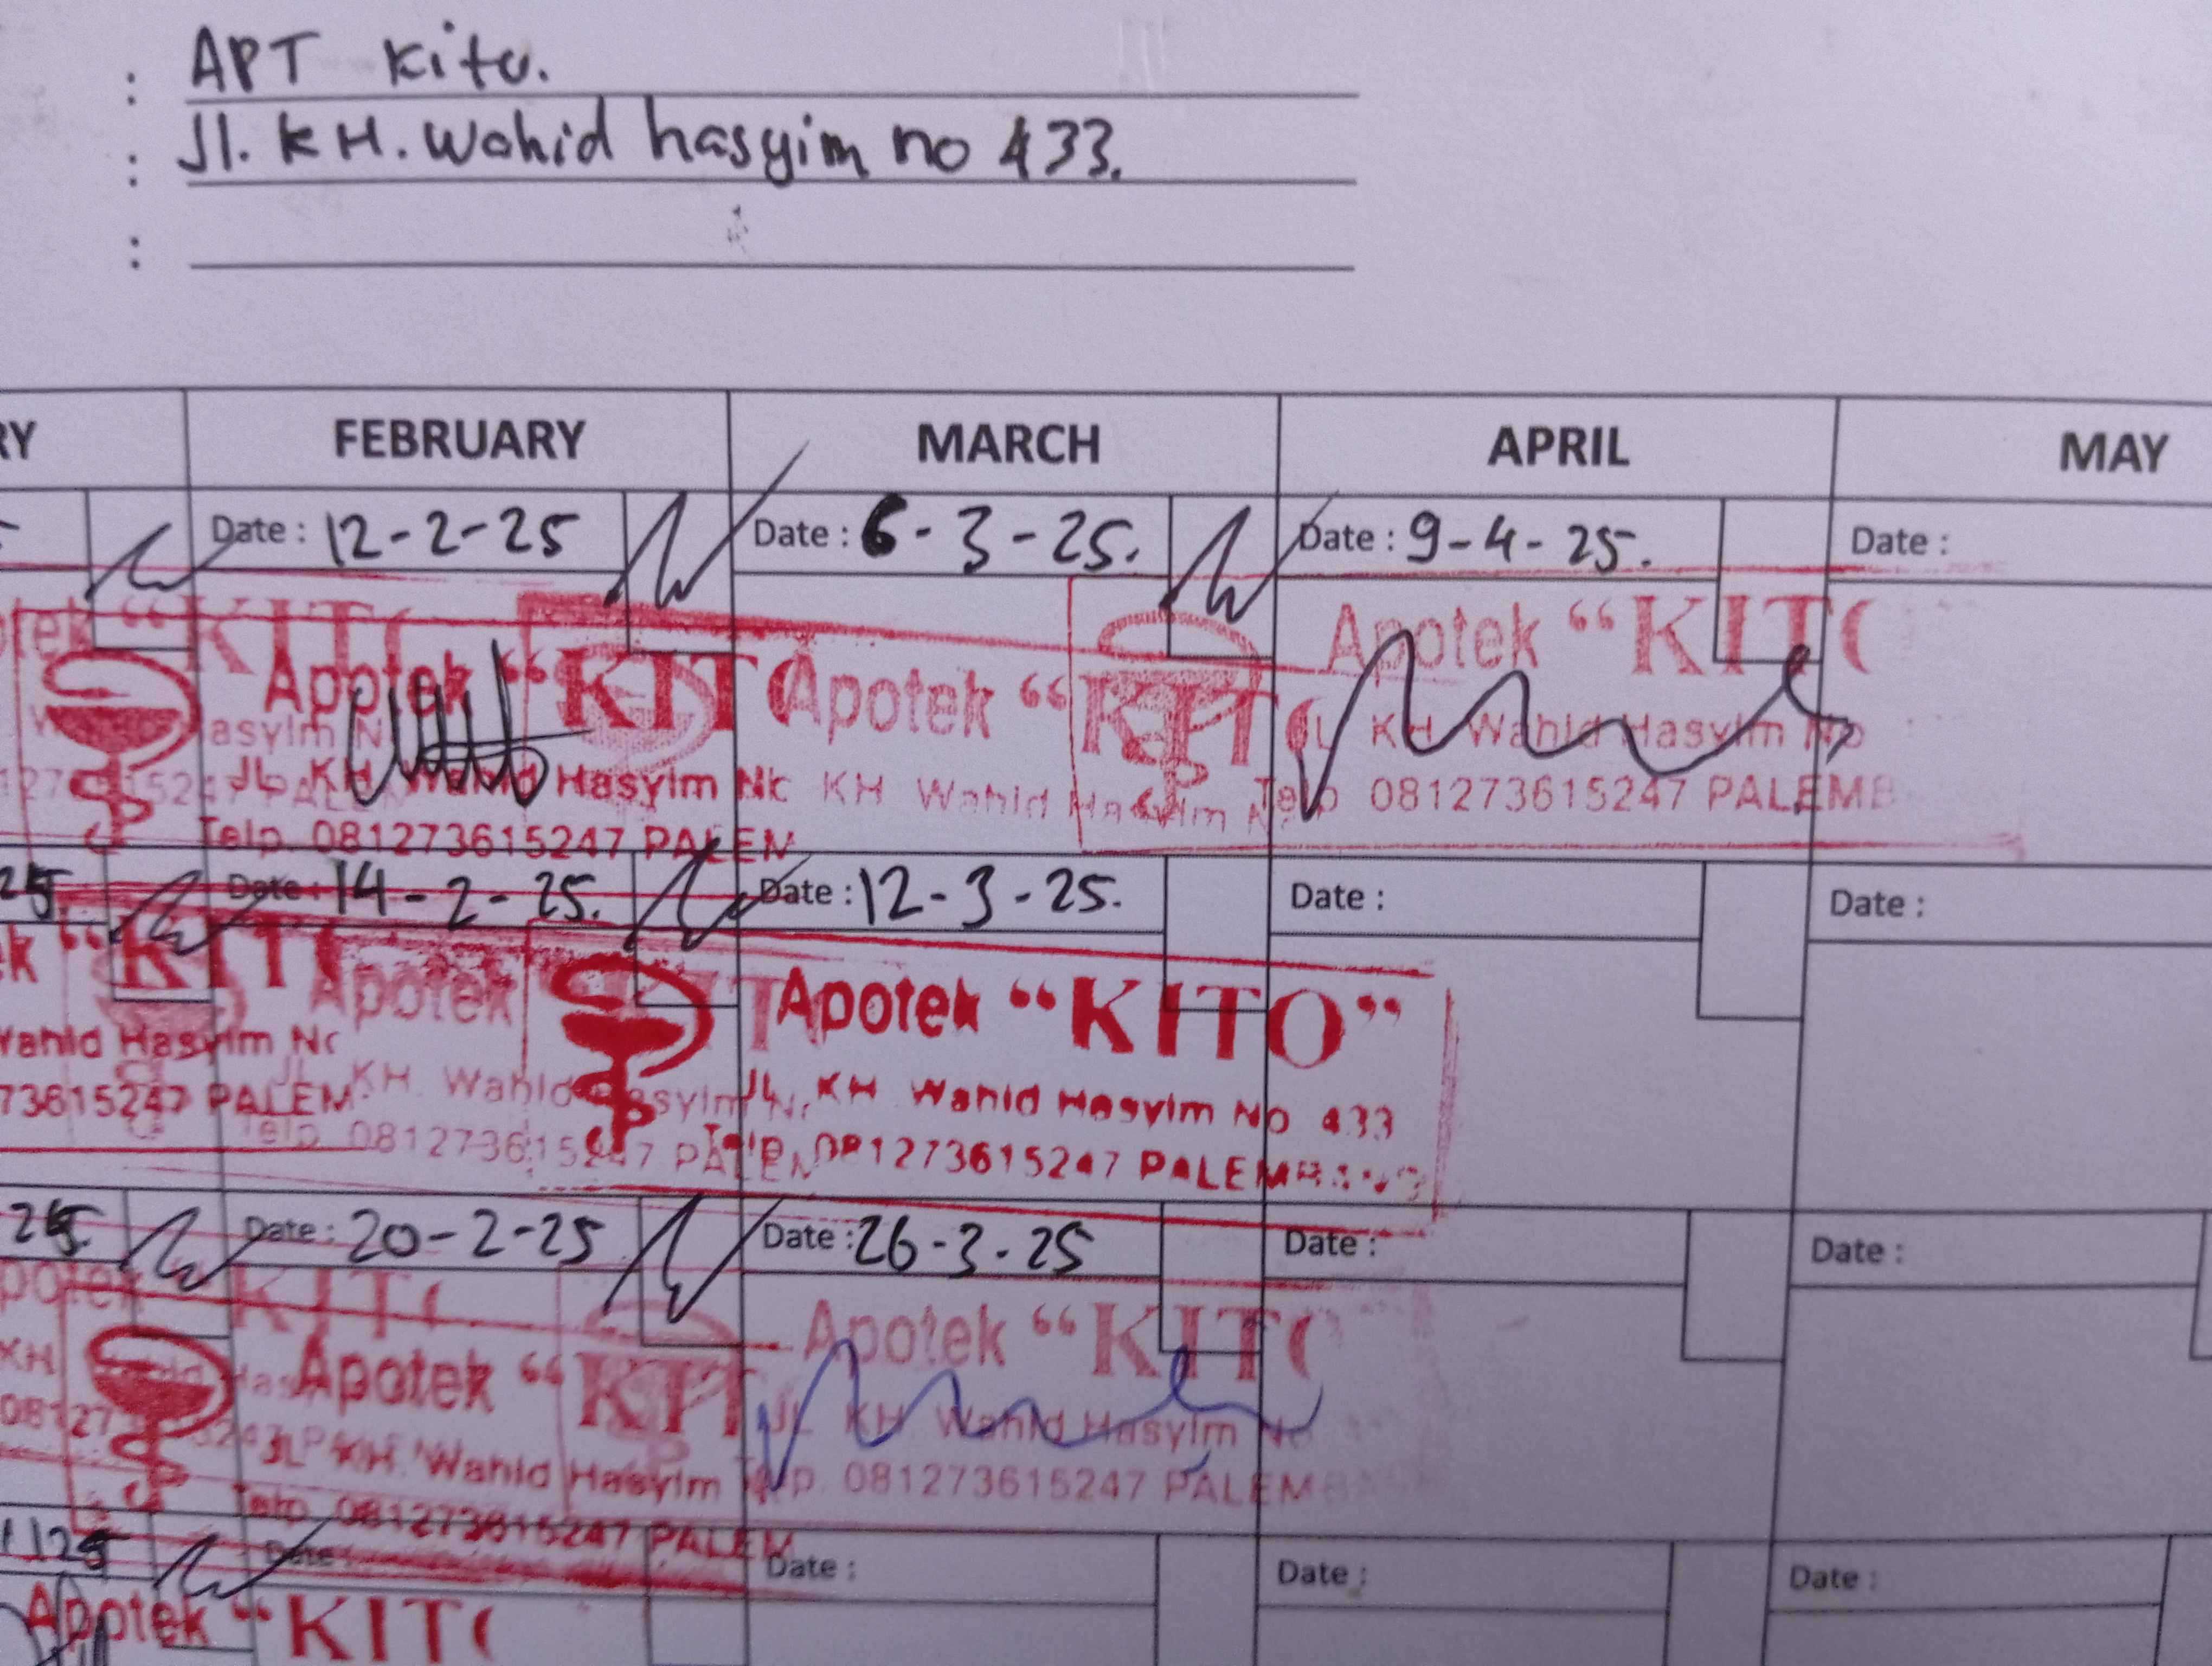 : APT Kito.
: Jl. KH. Wahid hasyim no 433.
:
RY FEBRUARY MARCH APRIL MAY
Date : 12-2-25 Date : 6-3-25. Date : 9-4-25. Date :
Apotek “KITO
Apotek “KIT Apotek “KIT
JL KH Wahid Hasyim No
JL. KH Wahid Hasyim No KH Wahid Hasyim
Telp 081273615247 PALEMB
Telp. 081273615247 PALEM
25 Date : 14-2-25. Date : 12-3-25. Date : Date :
ek “KIT Apotek Apotek “KITO”
Wahid Hasyim No JL. KH. Wahid Hasyim JL. KH Wahid Hasyim No 433
73615247 PALEM Telp. 081273615247 PALEM Telp. 081273615247 PALEMBANG
25. Date : 20-2-25 Date : 26-3-25 Date : Date :
Apotek “KIT Apotek “KITO
JL KH. Wahid Hasyim JL KH Wahid Hasyim No
Telp. 081273615247 PALEM Telp. 081273615247 PALEMB
Date : Date : Date : Date :
Apotek “KITO